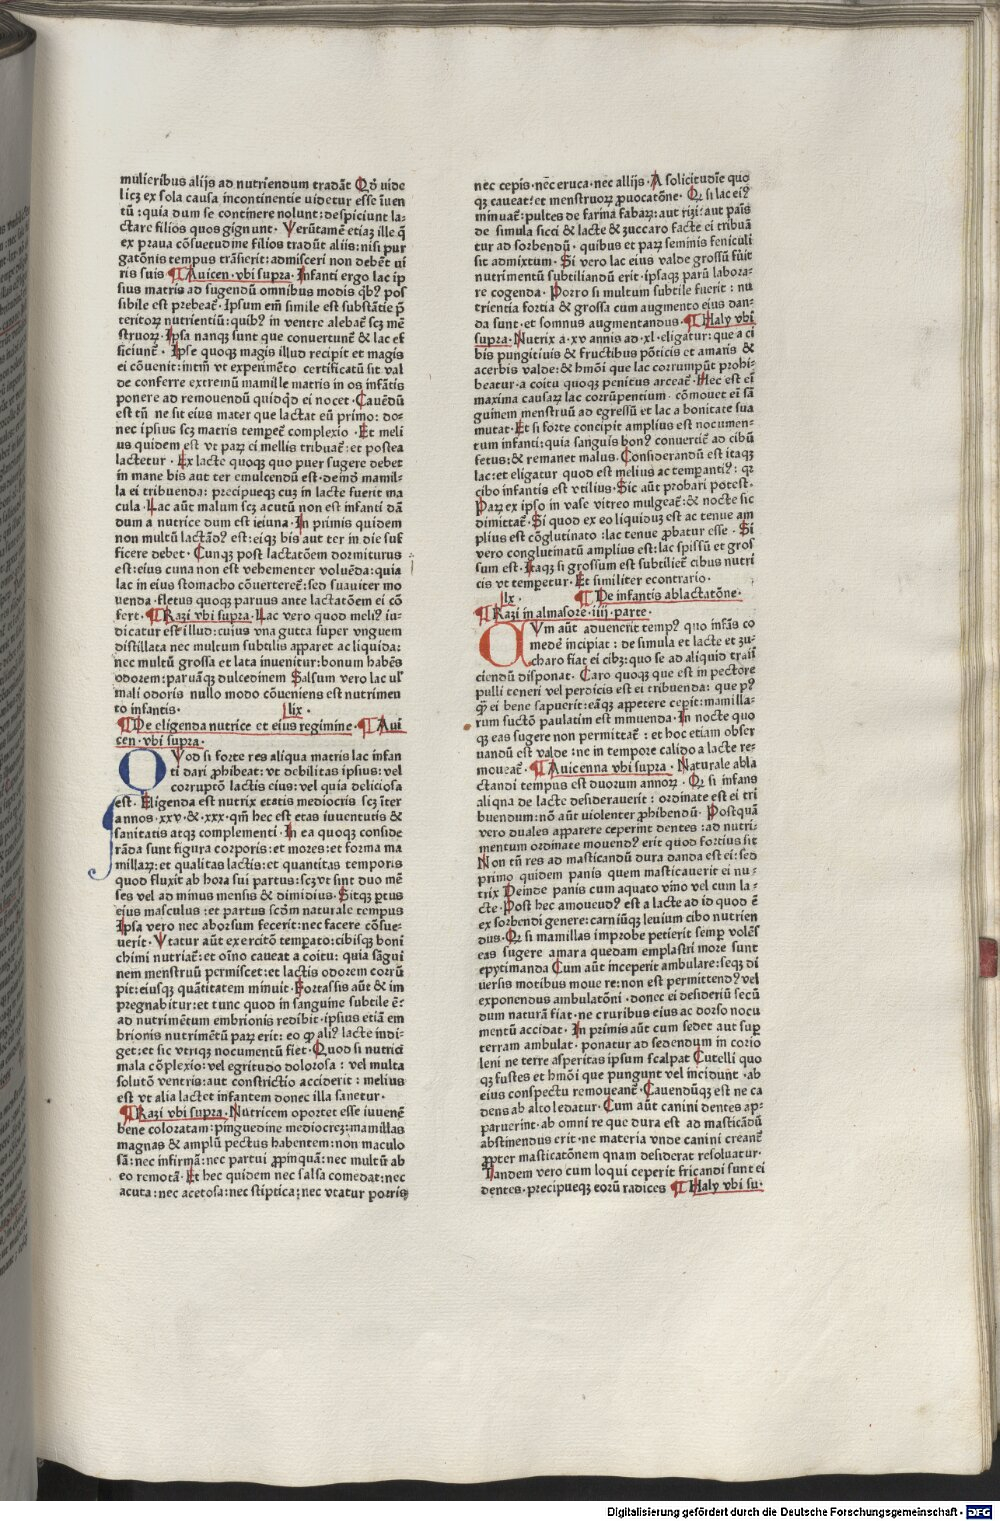 mulieribus alijs ad nutriendum tradāt Qd̄ uide
licꝫ ex sola causa incontinentie uidetur esse īuen
tū : quia dum se continere nolunt : despiciunt la-
ctare filios quos gignunt · Verūtamē etiaꝫ ille q̄
ex praua cōsuetudine filios tradūt aliis : nisi pur
gatōnis tempus trāsierit : admisceri non debēt ui
ris suis ¶ Auicen · vbi supra · Infanti ergo lac ip
sius matris ad sugendū omnibus modis qb? pos
sibile est prebeat̄ · Ipsum em̄ simile est substātie p̄
teritoꝝ nutrientiū : quib? in ventre alebat̄ scꝫ mē
struoꝝ · Ipsa nanqꝫ sunt que conuertunt̄ & lac ef
ficiunt̄ · Ipse quoqꝫ magis illud recipit et magis
ei cōuenit : intm̄ vt experimēto certificatū sit val
de conferre extremū mamille matris in os infātis
ponere ad remouendū quidqd ei nocet · Cauēdū
est tn̄ ne sit eius mater que lactat eū primo : do-
nec ipsius scꝫ matris temperet̄ complexio · Et meli
us quidem est vt paꝝ ci mellis tribuat̄ : et postea
lactetur · Ex lacte quoqꝫ quo puer sugere debet
in mane bis aut ter emulcendū est · demō mamil-
la ei tribuenda : precipueqꝫ cuꝫ in lacte fuerit ma
cula · Lac aūt malum scꝫ acutū non est infanti dā
dum a nutrice dum est ieiuna · In primis quidem
non multū lactādo? est : eiqꝫ bis aut ter in die suf
ficere debet · Cunqꝫ post lactatōem dormiturus
est : eius cuna non est vehementer voluēda : quia
lac in eius stomacho cōuerteret̄ : sed suauiter mo
uenda · fletus quoqꝫ paruus ante lactatōem ei cō
fert · ¶ Razi vbi supra · Lac vero quod meli? iu-
dicatur est illud : cuius vna gutta super vnguem
distillata nec multum subtilis apparet ac liquida :
nec multū grossa et lata inuenitur : bonum habēs
odorem : paruāqꝫ dulcedinem Salsum vero lac ul̄
mali odoris nullo modo cōueniens est nutrimen
to infantis · lix ·
¶ De eligenda nutrice et eius regimine · ¶ Aui
cen · vbi supra ·
QVod si forte res aliqua matris lac infan
ti dari ꝓhibeat : vt debilitas ipsius : vel
corruptō lactis eius : vel quia deliciosa
est · Eligenda est nutrix etatis mediocris scꝫ īter
annos · xxv · & · xxx · qm̄ hec est etas iuuentutis &
sanitatis atqꝫ complementi · In ea quoqꝫ conside
rāda sunt figura corporis : et mores : et forma ma
millaꝝ : et qualitas lactis : et quantitas temporis
quod fluxit ab hora sui partus : scꝫ vt sint duo mē
ses vel ad minus mensis & dimidius · Sitqꝫ ꝑtus
eius masculus : et partus scdm̄ naturale tempus
Ipsa vero nec aborsum fecerit : nec facere cōsue-
uerit · Vtatur aūt exercitō temꝑato : cibisqꝫ boni
chimi nutriat̄ : et oīno caueat a coitu : quia sāgui
nem menstruū permiscet : et lactis odorem corrū
pit : eiusqꝫ quātitatem minuit · Fortassis aūt & im
pregnabitur : et tunc quod in sanguine subtile ē :
ad nutrimētum embrionis redibit · ipsius etiā em
brionis nutrimētū paꝝ erit : eo ꝙ ali? lacte indi-
get : et sic vtriqꝫ nocumentū fiet · Quod si nutrici
mala cōplexio : vel egritudo dolorosa : vel multa
solutō ventris : aut constrictio acciderit : melius
est vt alia lactet infantem donec illa sanetur ·
¶ Razi vbi supra · Nutricem oportet esse iuuenē
bene coloratam : pinguedine mediocreꝫ : mamillas
magnas & amplū pectus habentem : non maculo
sā : nec infirmā : nec partui ꝓpinquā : nec multū ab
eo remotā · Et hec quidem nec salsa comedat : nec
acuta : nec acetosa : nec stiptica ; nec vtatur porris
nec cepis · nec̄ eruca · nec allijs · A solicitudīe quo
qꝫ caueat : et menstruoꝝ ꝓuocatōne · Qꝛ si lac ei?
minuat̄ : pultes de farina fabaꝝ : aut rizi : aut pāis
de simula sicci & lacte & zuccaro facte ei tribuā
tur ad sorbendū · quibus et paꝝ seminis feniculi
sit admixtum · Si vero lac eius valde grossū fūit
nutrimentū subtiliandū erit · ipsaqꝫ parū labora-
re cogenda · Porro si multum subtile fuerit : nu
trientia fortia & grossa cum augmento eius dan-
da sunt · et somnus augmentandus · ¶ Haly vbi
supra · Nutrix a · xv annis ad · xl · eligatur : que a ci
bis pungitiuis & fructibus pōticis et amaris &
acerbis valde : & hmōi que lac corrumpūt prohi-
beatur · a coitu quoqꝫ penitus arceat̄ · Hec est ei
maxima causaꝝ lac corrūpentium · cōmouet ei sā
guinem menstruū ad egressū et lac a bonitate sua
mutat · Et si forte concipit amplius est nocumen-
tum infanti : quia sanguis bon? conuertit̄ ad cibū
fetus : & remanet malus · Considerandū est itaqꝫ
lac : et eligatur quod est melius ac temꝑanti? : qꝛ
cibo infantis est vtilius · Sic aūt probari potest ·
Paꝝ ex ipso in vase vitreo mulgeat̄ : & nocte sic
dimittat̄ · Si quod ex eo liquiduꝫ est ac tenue am
plius est cōglutinato : lac tenue ꝓbatur esse · Si
vero conglutinatū amplius est : lac spissū et gros
sum est · Itaqꝫ si grossum est subtiliet̄ cibus nutri
cis vt temperetur · Et similiter econtrario ·
lx · ¶ De infantis ablactatōne ·
¶ Razi in almasore · iiij · parte ·
CVm aūt aduenerit temp? quo infās co
medē incipiat : de simula et lacte et zu-
charo fiat ei cibꝫ : quo se ad aliquid traīi
ciendū disponat · Caro quoqꝫ que est in pectore
pulli teneri vel perdicis est ei tribuenda : que p?
qꝫ ei bene sapuerit : eāqꝫ appetere ceperit : mamilla-
rum suctō paulatim est minuenda · In nocte quo
qꝫ eas sugere non permittat̄ : et hoc etiam obser
uandū est valde : ne in tempore calido a lacte re-
moueat̄ · ¶ Auicenna vbi supra · Naturale abla
ctandi tempus est duorum annoꝝ · Qꝛ si infans
aliqua de lacte desiderauerit : ordinate est ei tri
buendum : nō aūt uiolenter ꝓhibendū · Postquā
vero duales apparere ceperint dentes : ad nutri-
mentum ordinate mouend? erit quod fortius sit
Non tn̄ res ad masticandū dura danda est ei : sed
primo quidem panis quem masticauerit ei nu-
trix Deinde panis cum aquato vino vel cum la-
cte · Post hec amouend? est a lacte ad id quod ē
ex sorbendi genere : carniūqꝫ leuium cibo nutrien
dus · Qꝛ si mamillas improbe petierit semꝑ volēs
eas sugere amara quedam emplastri more sunt
epytimanda Cum aūt inceperit ambulare : seqꝫ di
uersis motibus moue re : non est permittend? vel
exponendus ambulatōni · donec ei desideriū secū
dum naturā fiat · ne cruribus eius ac dorso nocu
mentū accidat · In primis aūt cum sedet aut suꝑ
terram ambulat · ponatur ad sedendum in corio
leni ne terre asperitas ipsum scalpat Cutelli quo
qꝫ fustes et hmōi que pungunt vel incidunt · ab
eius conspectu remoueant̄ · Cauendūqꝫ est ne ca
dens ab alto ledatur · Cum aūt canini dentes ap-
paruerint · ab omni re que dura est ad masticādū
abstinendus erit · ne materia vnde canini creant̄
ꝓpter masticatōnem quam desiderat resoluatur ·
Tandem vero cum loqui ceperit fricandi sunt ei
dentes · precipueqꝫ eorū radices ¶ Haly vbi su ·
Digitalisierung gefördert durch die Deutsche Forschungsgemeinschaft · DFG